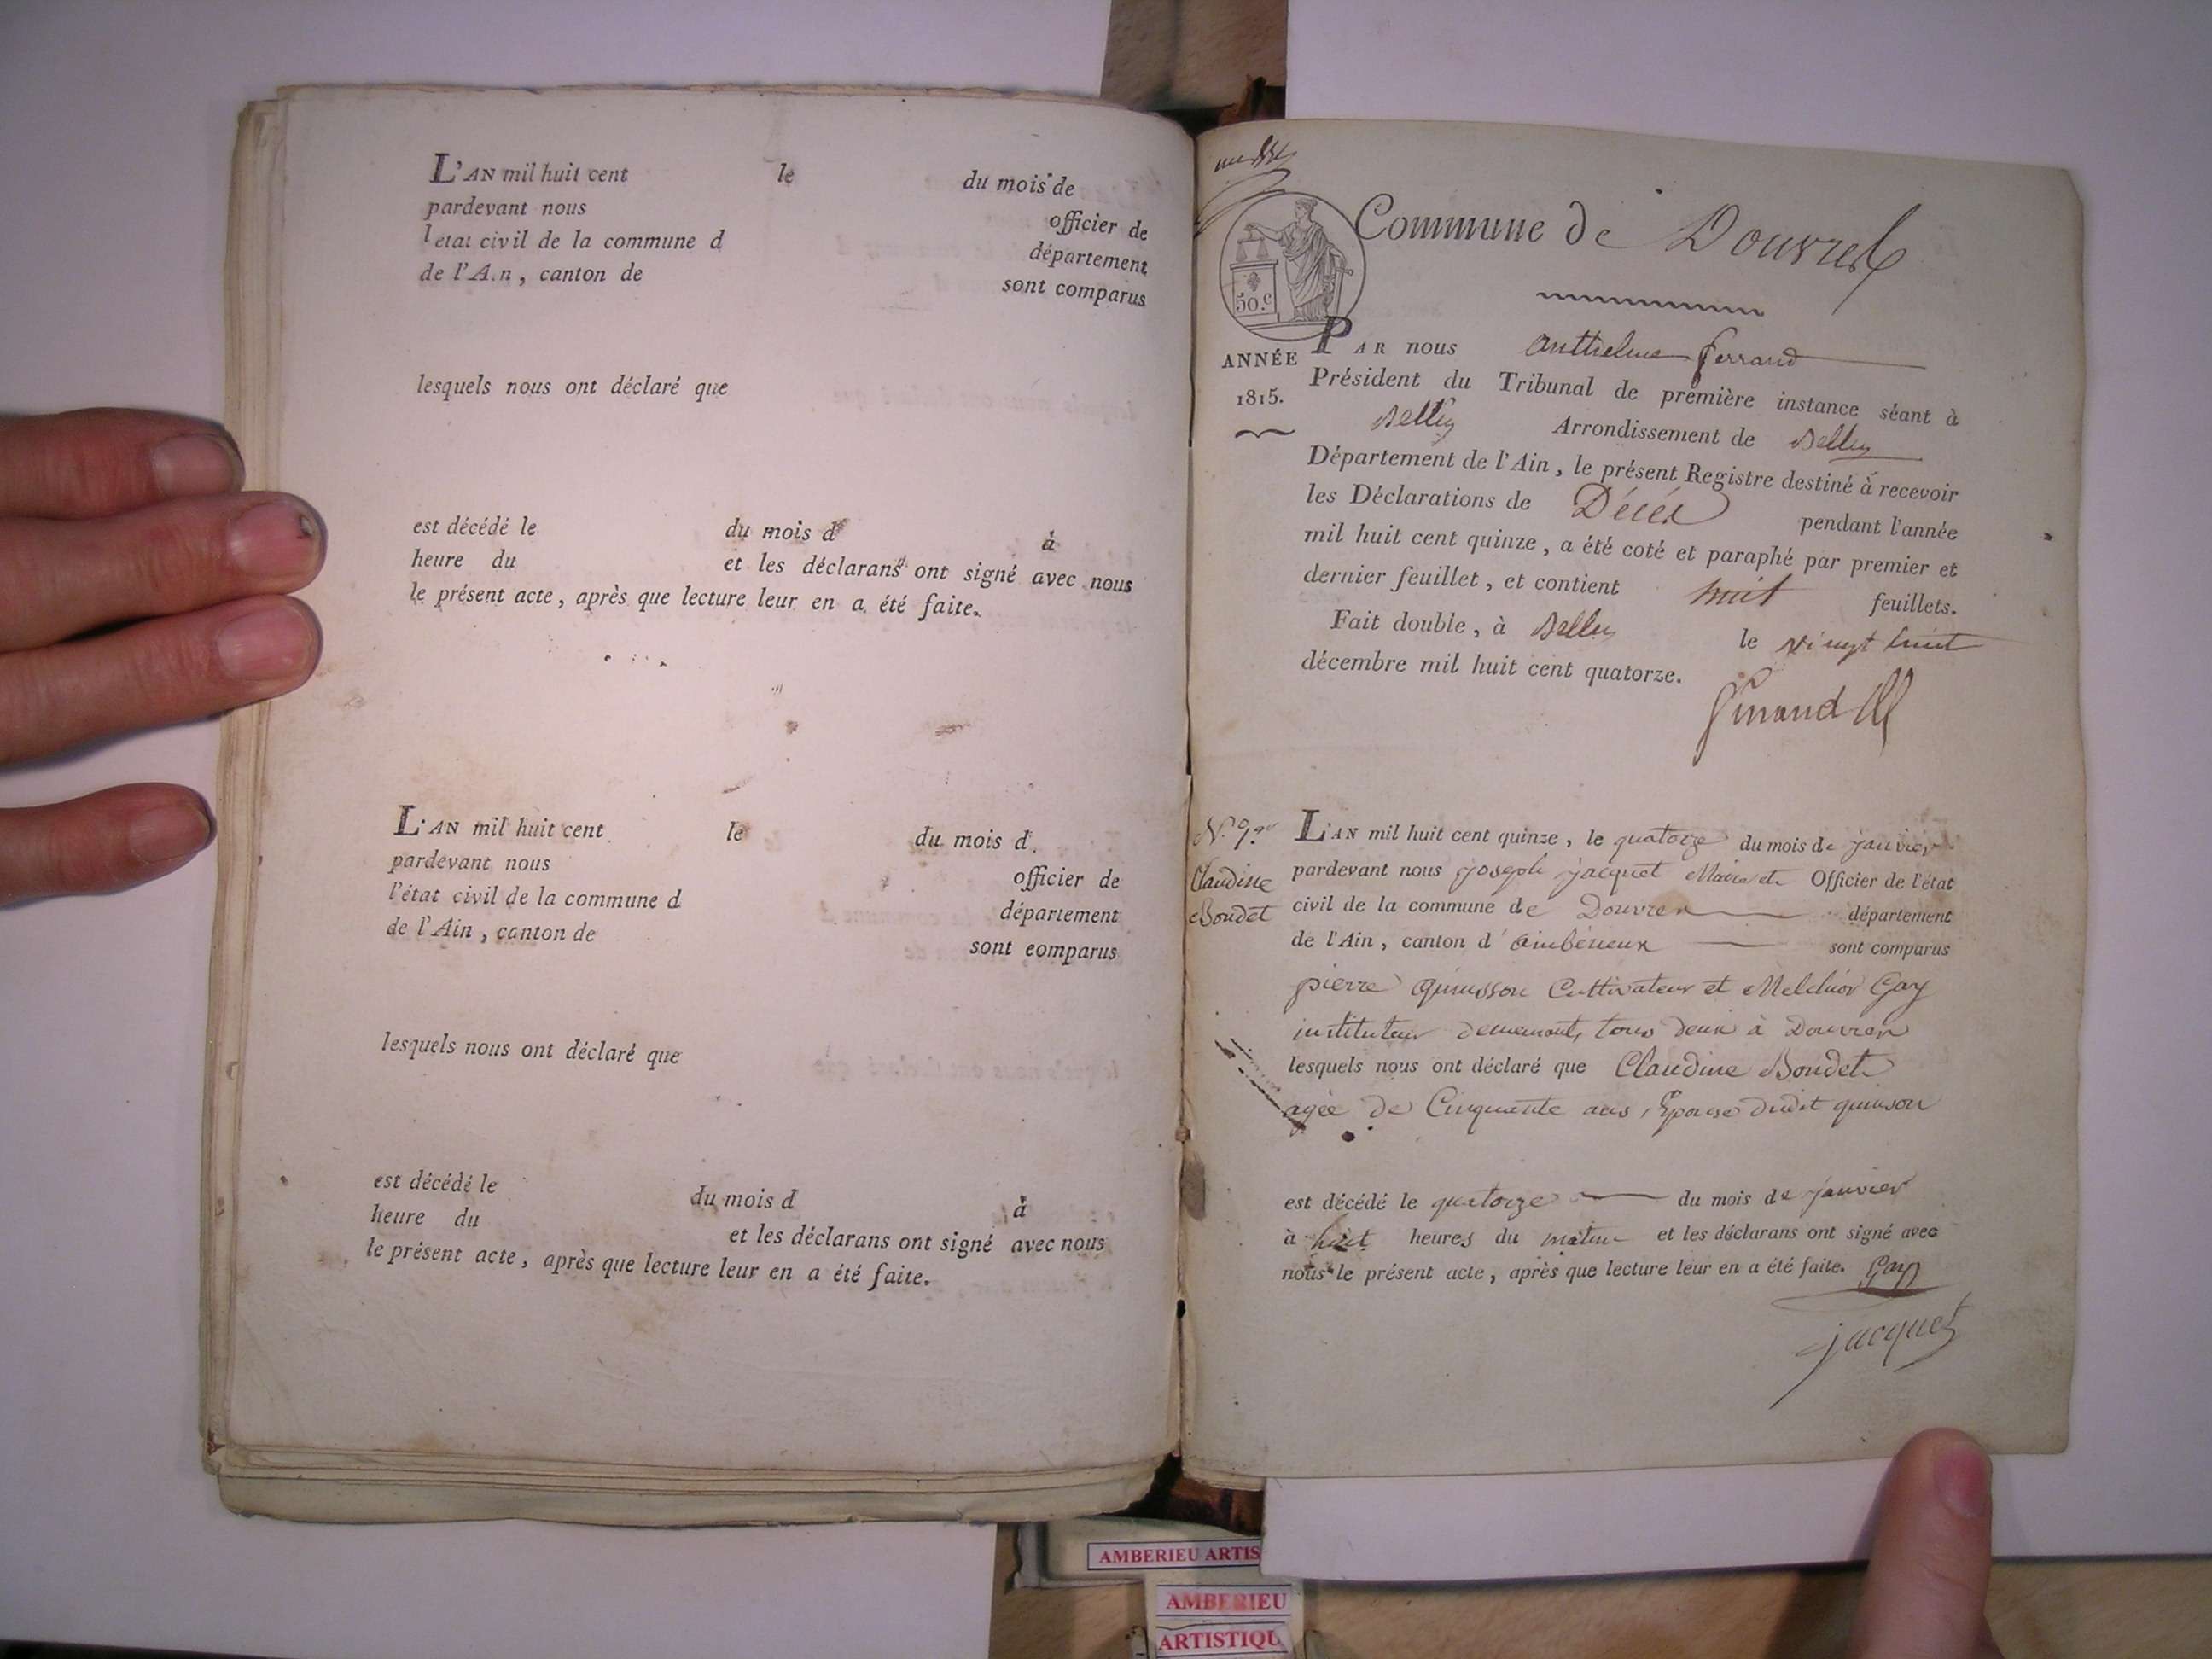 L'AN mil huit cent le du mois de
pardevant nous officier de
l'etat civil de la commune d département
de l'A.n, canton de sont comparus
lesquels nous ont déclaré que
est décédé le du mois d à
heure du et les déclarans ont signé avec nous
le présent acte, après que lecture leur en a été faite.
L'AN mil huit cent le du mois d.
pardevant nous officier de
l'état civil de la commune d département
de l'Ain, canton de sont comparus
lesquels nous ont déclaré que
est décédé le du mois d à
heure du et les déclarans ont signé avec nous
le présent acte, après que lecture leur en a été faite.
Commune de Douvres
50.c
ANNÉE
1815.
PAR nous Anthelme ferrand
Président du Tribunal de première instance séant à
Belley Arrondissement de Belley
Département de l'Ain, le présent Registre destiné à recevoir
les Déclarations de Décés pendant l'année
mil huit cent quinze, a été coté et paraphé par premier et
dernier feuillet, et contient huit feuillets.
Fait double, à Belley le vingt huit
décembre mil huit cent quatorze.
Claudine
Boudet
L'AN mil huit cent quinze, le quatorze du mois de janvier
pardevant nous joseph jacquet Maire et Officier de l'état
civil de la commune de Douvres département
de l'Ain, canton d'ambérieux sont comparus
pierre quinsson Cultivateur et Melchior Gay
instituteur demeurants tous deux à Douvres
lesquels nous ont déclaré que Claudine Boudet
agée de Cinquante ans, Epouse dudit quinson
est décédé le quatorze du mois de janvier
à huit heures du matin et les déclarans ont signé avec
nous le présent acte, après que lecture leur en a été faite. Gay
jacquet
AMBERIEU ARTIS
AMBERIEU
ARTISTIQU